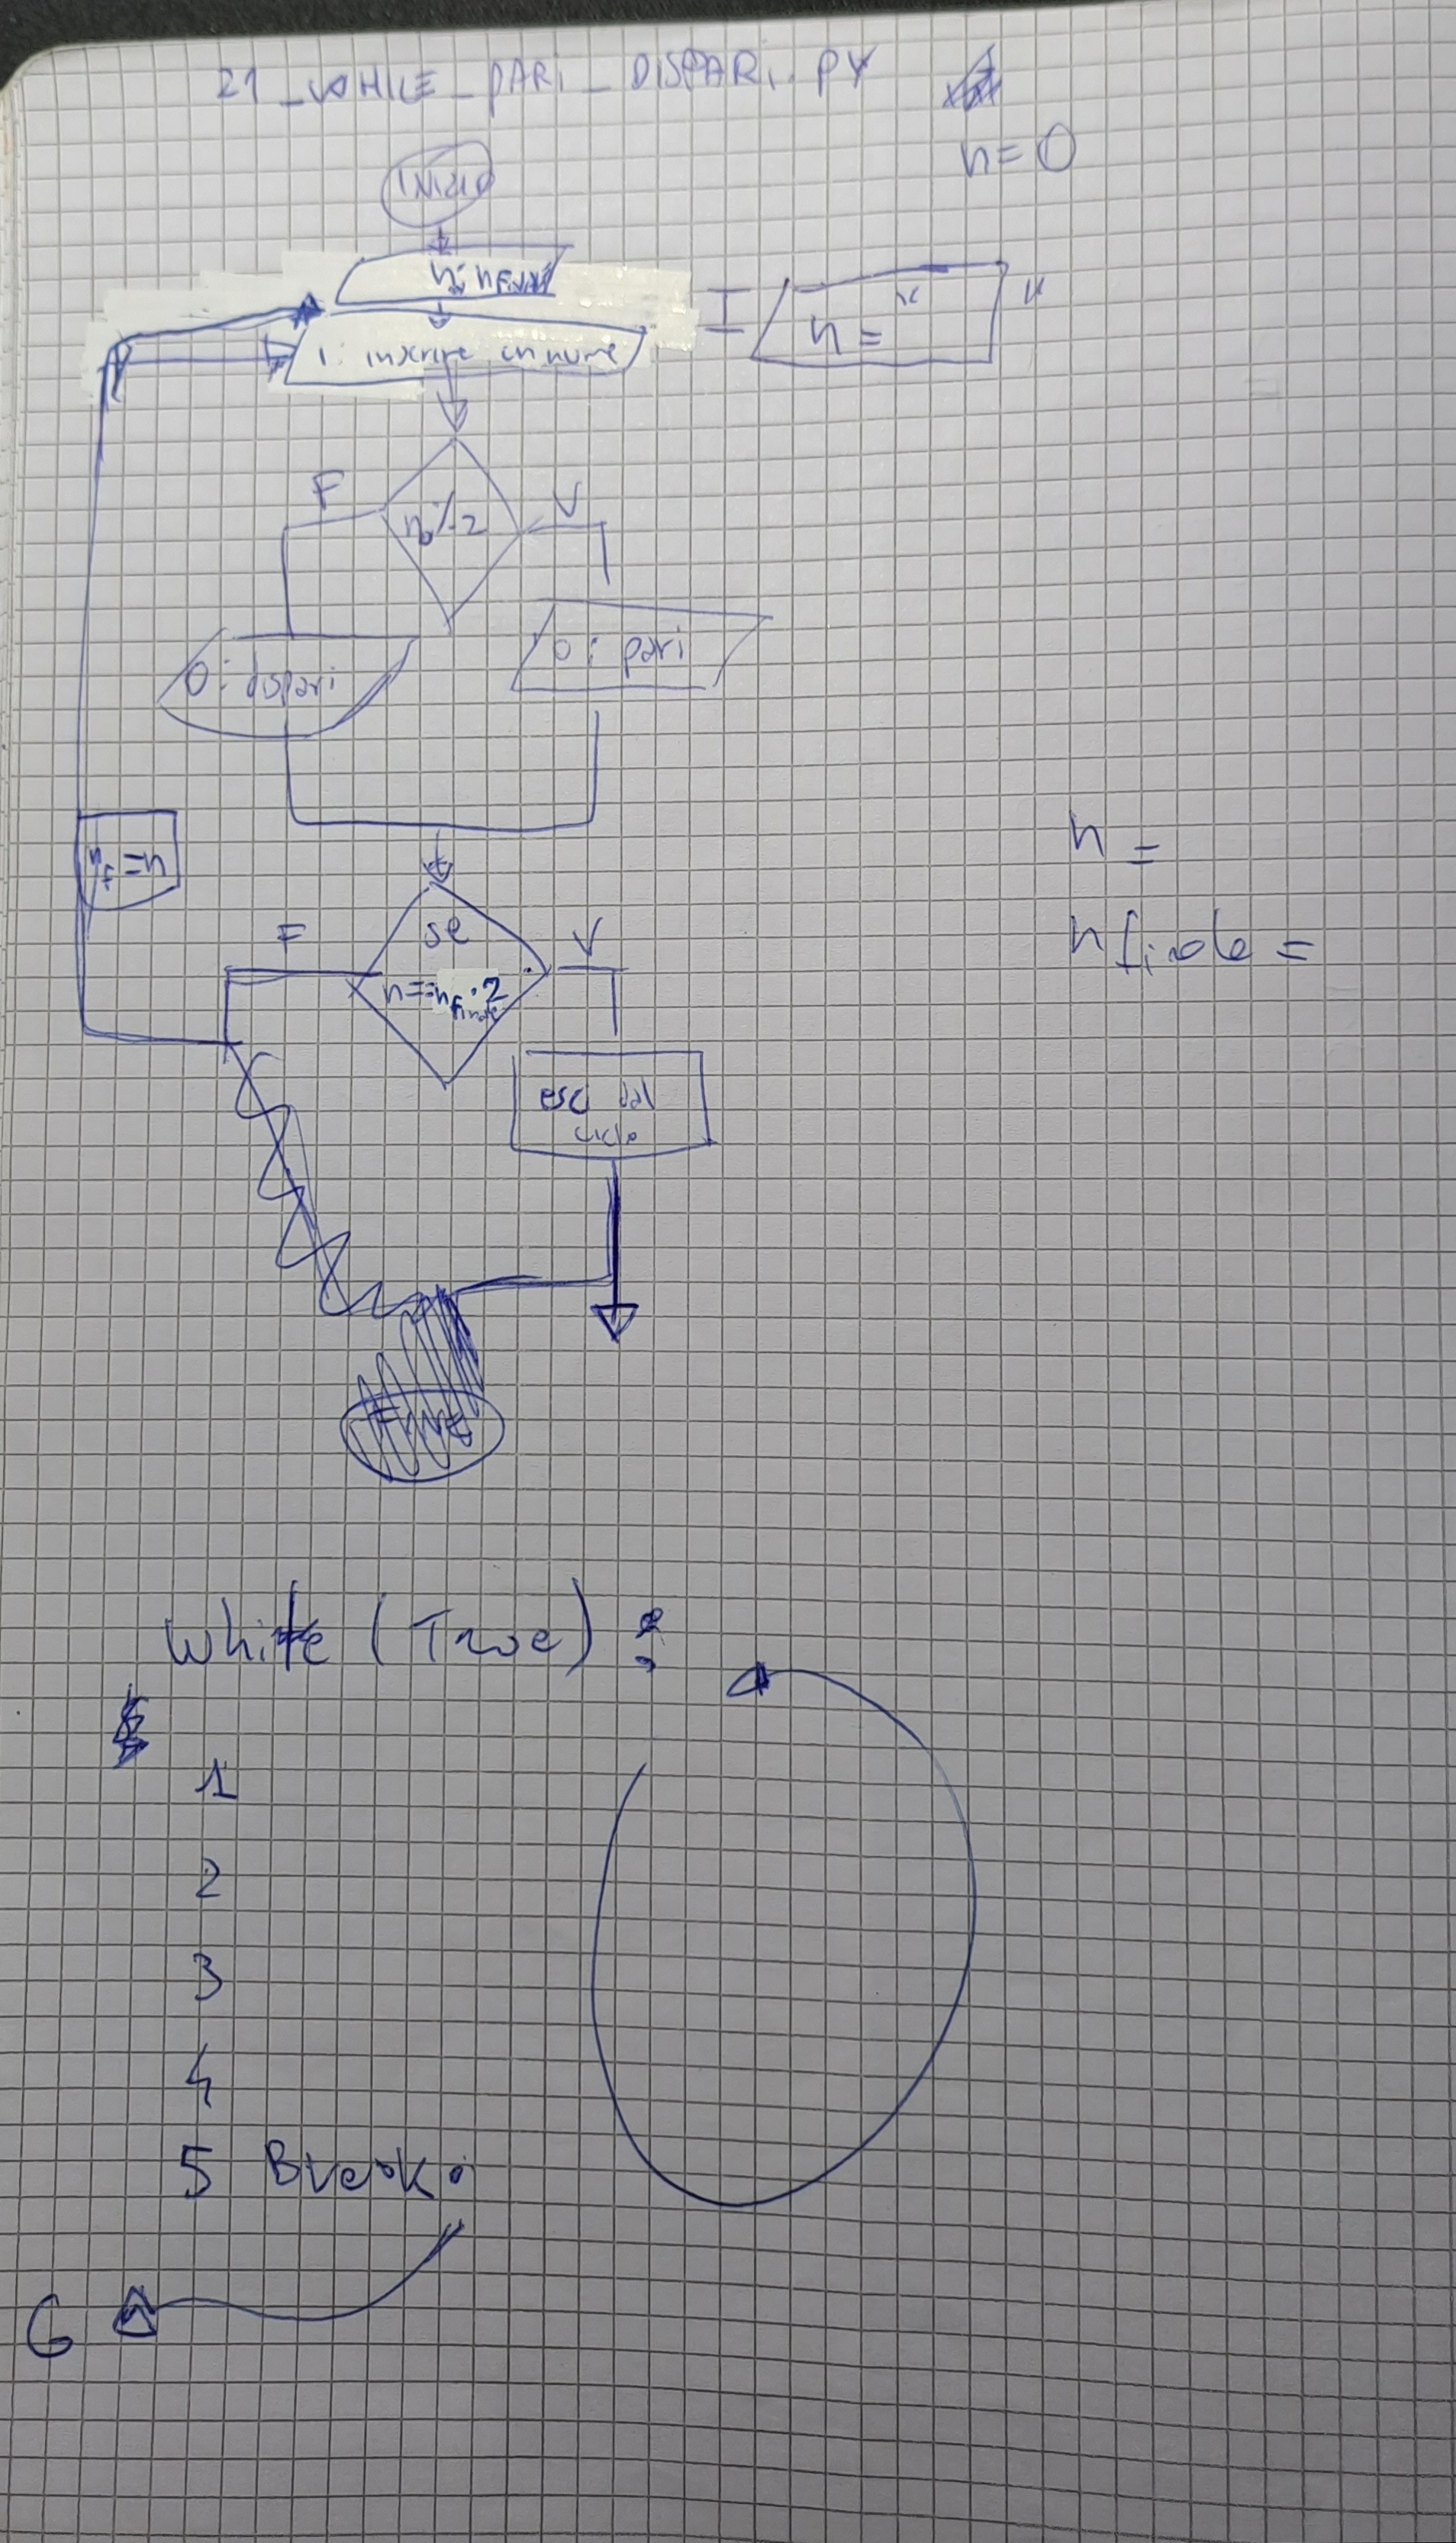 21_WHILE_PARI_DISPARI.PY
n=0
INIZIO
n; nFinale
I: inserire un nume
I n = " "
F n%2 V
O: dispari
O: pari
nf=n
F se V
n==nfinale·2
esci dal
ciclo
n =
n finale =
FINE
While (True) :
1
2
3
4
5 Break
6